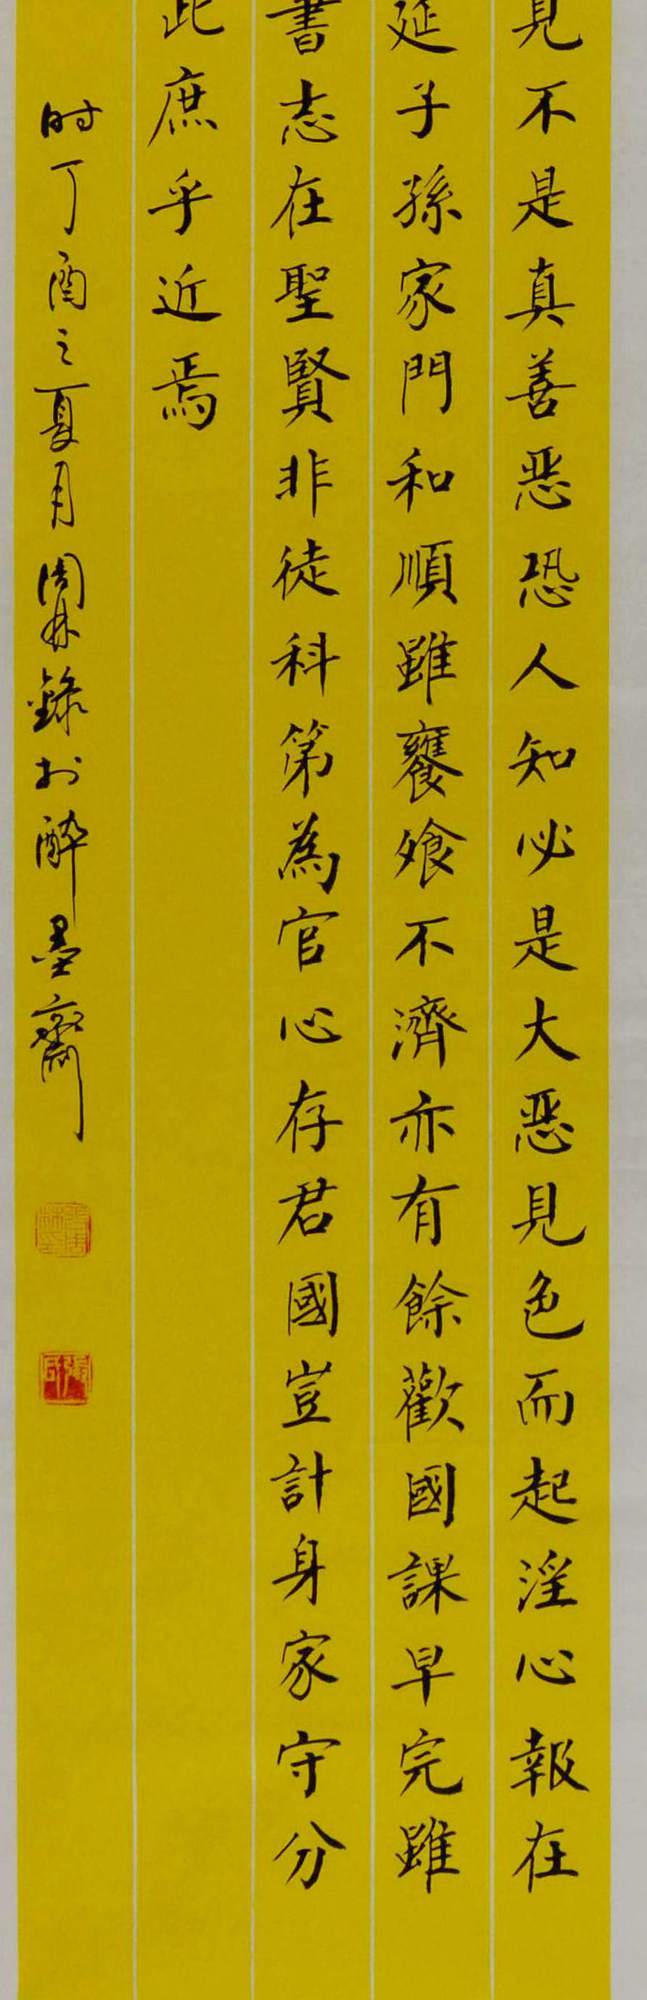 見不是真善惡恐人知必是大惡見色而起淫心報在
延子孫家門和順雖饔飧不濟亦有餘歡國課早完雖
書志在聖賢非徒科第為官心存君國豈計身家守分
此庶乎近焉
时丁酉之夏月周林錄於醉墨齋